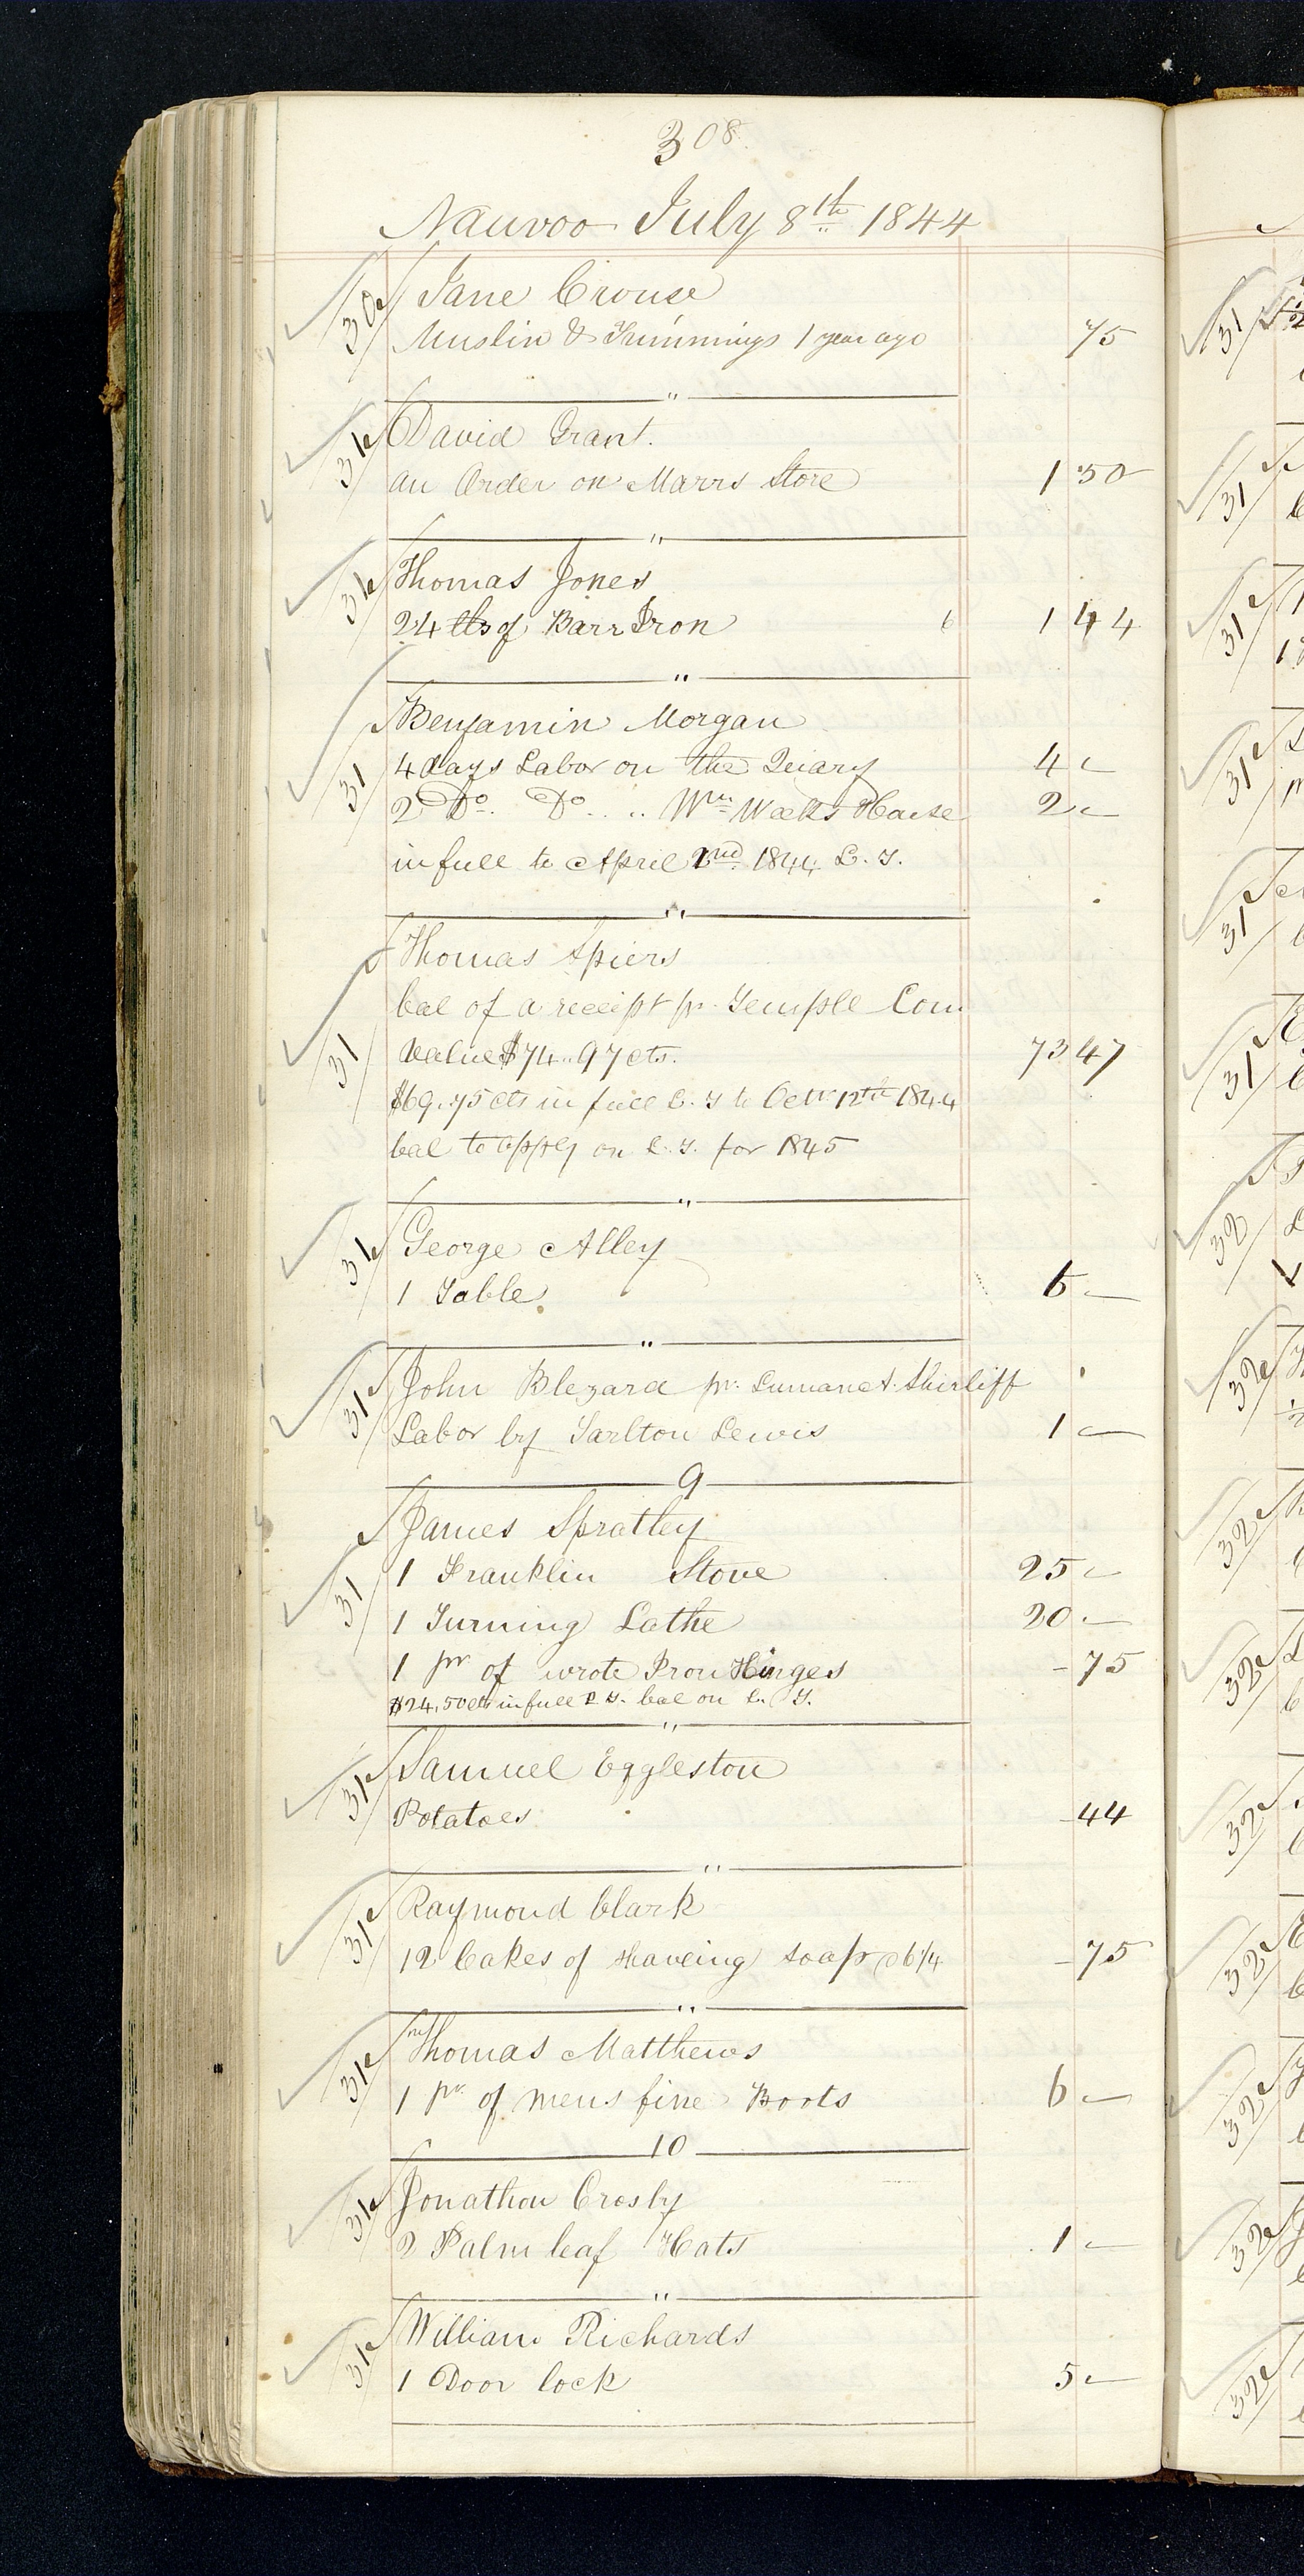 308
Nauvoo July 8th 1844
30 Jane Crouse
Muslin & Trimmings 1 year ago 75
"
31 David Grant.
an Order on Marrs Store 1 50
"
31 Thomas Jones
24 lbs of Barr Iron 6 1 44
"
Benjamin Morgan
31 4 days Labor on the Quary 4 -
2 Do. Do. .. Wm Weeks House 2 -
in full to April 2nd 1844 L. T.
"
Thomas Spiers
bal of a receipt pr. Temple Com
31 Value $74..97 cts. 73 47
$69.75 cts in full L. T to Octr 12th 1844
bal to apply on L. T. for 1845
"
31 George Alley
1 Table 5 -
"
31 John Blezard pr. Luman A. Shirliff
Labor by Tarlton Lewis 1 -
9
James Spratley
31 1 Franklin Stove 25 -
1 Turning Lathe 20 -
1 pr of wrote Iron Hinges - 75
$24,50cts in full P. T. bal on L. T.
"
31 Samuel Eggleston
Potatoes - 44
"
31 Raymond Clark
12 Cakes of shaveing soap @ 6 1/4 - 75
"
31 Thomas Matthews
1 pr. of mens fine Boots 6 -
10
31 Jonathan Crosby
2 Palm leaf Hats 1 -
"
31 William Richards
1 Door lock 5 -
31
31
31
31
31
31
32
32
32
32
32
32
32
32